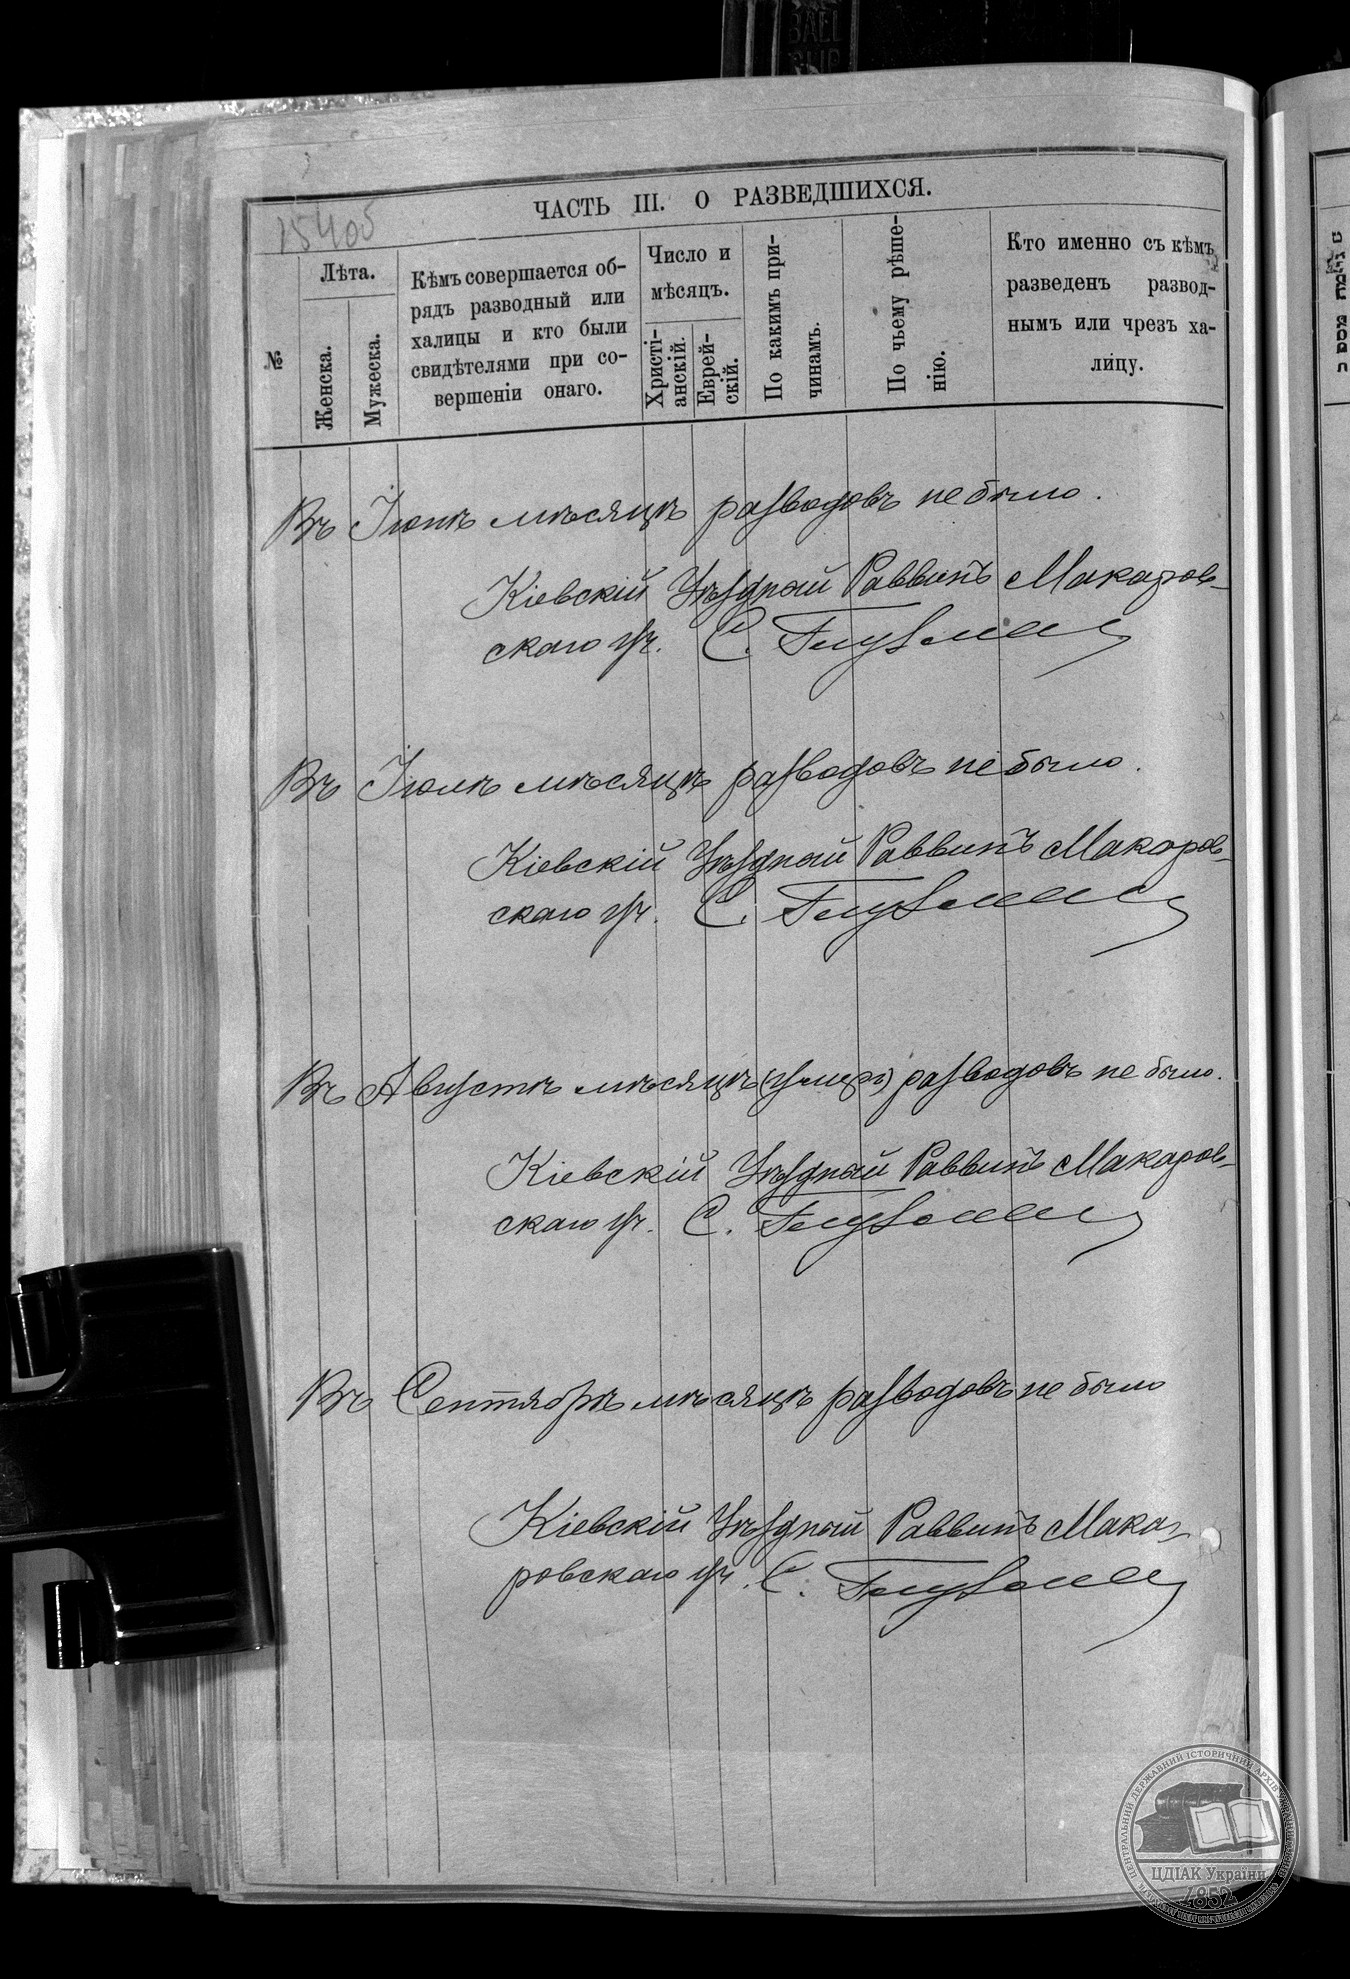 ЧАСТЬ III. О РАЗВЕДШИХСЯ.
№
Лѣта.
Женска.
Мужеска.
Кѣмъ совершается об-
рядъ разводный или
халицы и кто были
свидѣтелями при со-
вершеніи онаго.
Число и
мѣсяцъ.
Христі-
анскій.
Еврей-
скій.
По какимъ при-
чинамъ.
По чьему рѣше-
нію.
Кто именно съ кѣмъ
разведенъ развод-
нымъ или чрезъ ха-
лицу.
Въ Іюнѣ мѣсяцѣ разводовъ не было.
Кіевскій Уѣздный Раввинъ Макаров-
скаго уч. С.
Въ Іюлѣ мѣсяцѣ разводовъ не было.
Кіевскій Уѣздный Раввинъ Макаров-
скаго уч. С.
Въ Августѣ мѣсяцѣ разводовъ не было.
Кіевскій Уѣздный Раввинъ Макаров-
скаго уч. С.
Въ Сентябрѣ мѣсяцѣ разводовъ не было
Кіевскій Уѣздный Раввинъ Мака-
ровскаго уч. С.
ЦЕНТРАЛЬНИЙ ДЕРЖАВНИЙ ІСТОРИЧНИЙ АРХІВ УКРАЇНИ
ЦДІАК України
1852